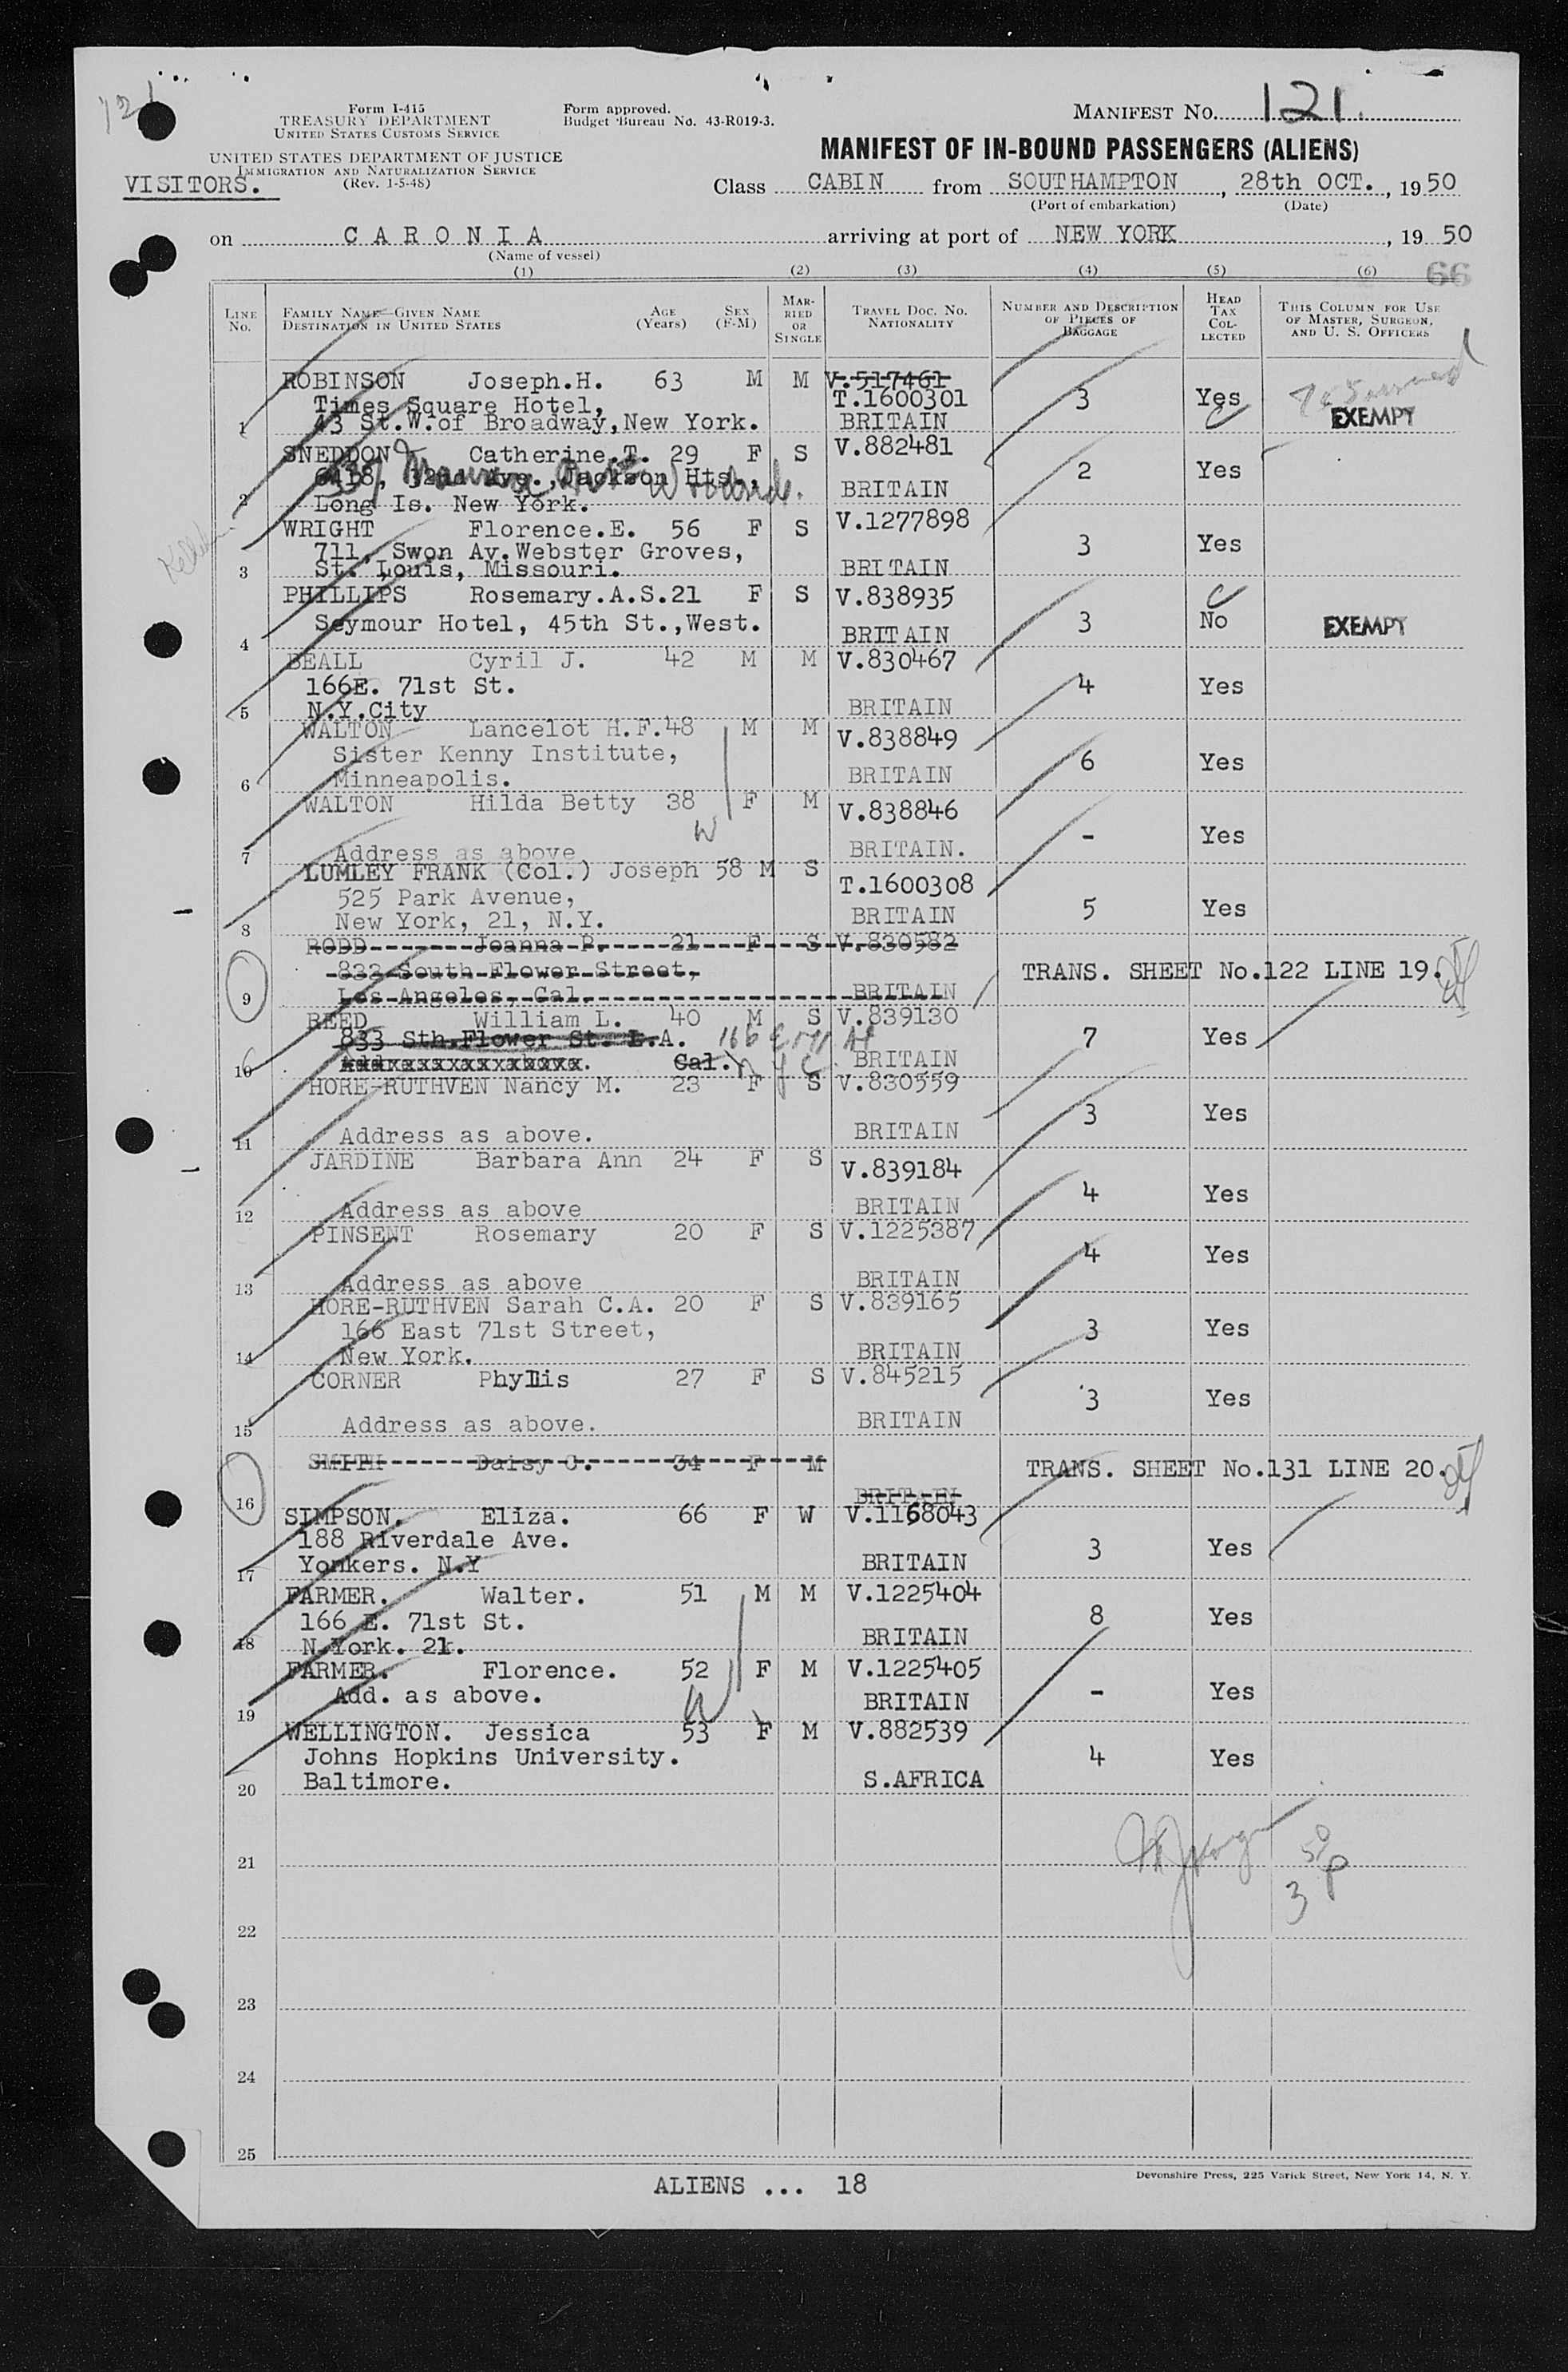 121
Form I-415
TREASURY DEPARTMENT
UNITED STATES CUSTOMS SERVICE
Form approved.
Budget Bureau No. 43-R019-3.
MANIFEST No. 121.
UNITED STATES DEPARTMENT OF JUSTICE
IMMIGRATION AND NATURALIZATION SERVICE
(Rev. 1-5-48)
VISITORS.
MANIFEST OF IN-BOUND PASSENGERS (ALIENS)
Class CABIN from SOUTHAMPTON, 28th OCT., 1950
(Port of embarkation) (Date)
on CARONIA arriving at port of NEW YORK, 19 50
(Name of vessel)
(1) (2) (3) (4) (5) (6) 66
LINE No. FAMILY NAME—GIVEN NAME DESTINATION IN UNITED STATES AGE (Years) SEX (F-M) MARRIED OR SINGLE TRAVEL DOC. No. NATIONALITY NUMBER AND DESCRIPTION OF PIECES OF BAGGAGE HEAD TAX COLLECTED THIS COLUMN FOR USE OF MASTER, SURGEON, AND U. S. OFFICERS
ROBINSON Joseph.H. 63 M M V.517461
Times Square Hotel, T.1600301 3 Yes
1 43 St.W.of Broadway,New York. BRITAIN EXEMPT
SNEDDON Catherine.T. 29 F S V.882481
6418, 32nd Ave.,Jackson Hts., Woodside. 2 Yes
2 Long Is. New York. BRITAIN
WRIGHT Florence.E. 56 F S V.1277898
711, Swon Av.Webster Groves, 3 Yes
3 St. Louis, Missouri. BRITAIN
PHILLIPS Rosemary.A.S.21 F S V.838935
Seymour Hotel, 45th St.,West. 3 No EXEMPT
4 BRITAIN
BEALL Cyril J. 42 M M V.830467
166E. 71st St. 4 Yes
5 N.Y.City BRITAIN
WALTON Lancelot H.F.48 M M V.838849
Sister Kenny Institute, 6 Yes
6 Minneapolis. BRITAIN
WALTON Hilda Betty 38 F M V.838846
W - Yes
7 Address as above BRITAIN.
LUMLEY FRANK (Col.) Joseph 58 M S T.1600308
525 Park Avenue, 5 Yes
8 New York, 21, N.Y. BRITAIN
RODD Joanna P. 21 F S V.830582
833 South Flower Street, TRANS. SHEET No.122 LINE 19.
9 Los Angeles, Cal. BRITAIN
REED William L. 40 M S V.839130
833 Sth.Flower St. L.A. 166 E 71 St 7 Yes
10 Cal. N Y C BRITAIN
HORE-RUTHVEN Nancy M. 23 F S V.830559
3 Yes
11 Address as above. BRITAIN
JARDINE Barbara Ann 24 F S V.839184
4 Yes
12 Address as above BRITAIN
PINSENT Rosemary 20 F S V.1225387
4 Yes
13 Address as above BRITAIN
HORE-RUTHVEN Sarah C.A. 20 F S V.839165
166 East 71st Street, 3 Yes
14 New York. BRITAIN
CORNER Phyllis 27 F S V.845215
3 Yes
15 Address as above. BRITAIN
SMITH Daisy C. 34 F M TRANS. SHEET No.131 LINE 20.
16 BRITAIN
SIMPSON. Eliza. 66 F W V.1168043
188 Riverdale Ave. 3 Yes
17 Yonkers. N.Y BRITAIN
FARMER. Walter. 51 M M V.1225404
166 E. 71st St. 8 Yes
18 N.York. 21. BRITAIN
FARMER. Florence. 52 F M V.1225405
Add. as above. W - Yes
19 BRITAIN
WELLINGTON. Jessica 53 F M V.882539
Johns Hopkins University. 4 Yes
20 Baltimore. S.AFRICA
21
22
23
24
25
ALIENS ... 18
Devonshire Press, 225 Varick Street, New York 14, N. Y.